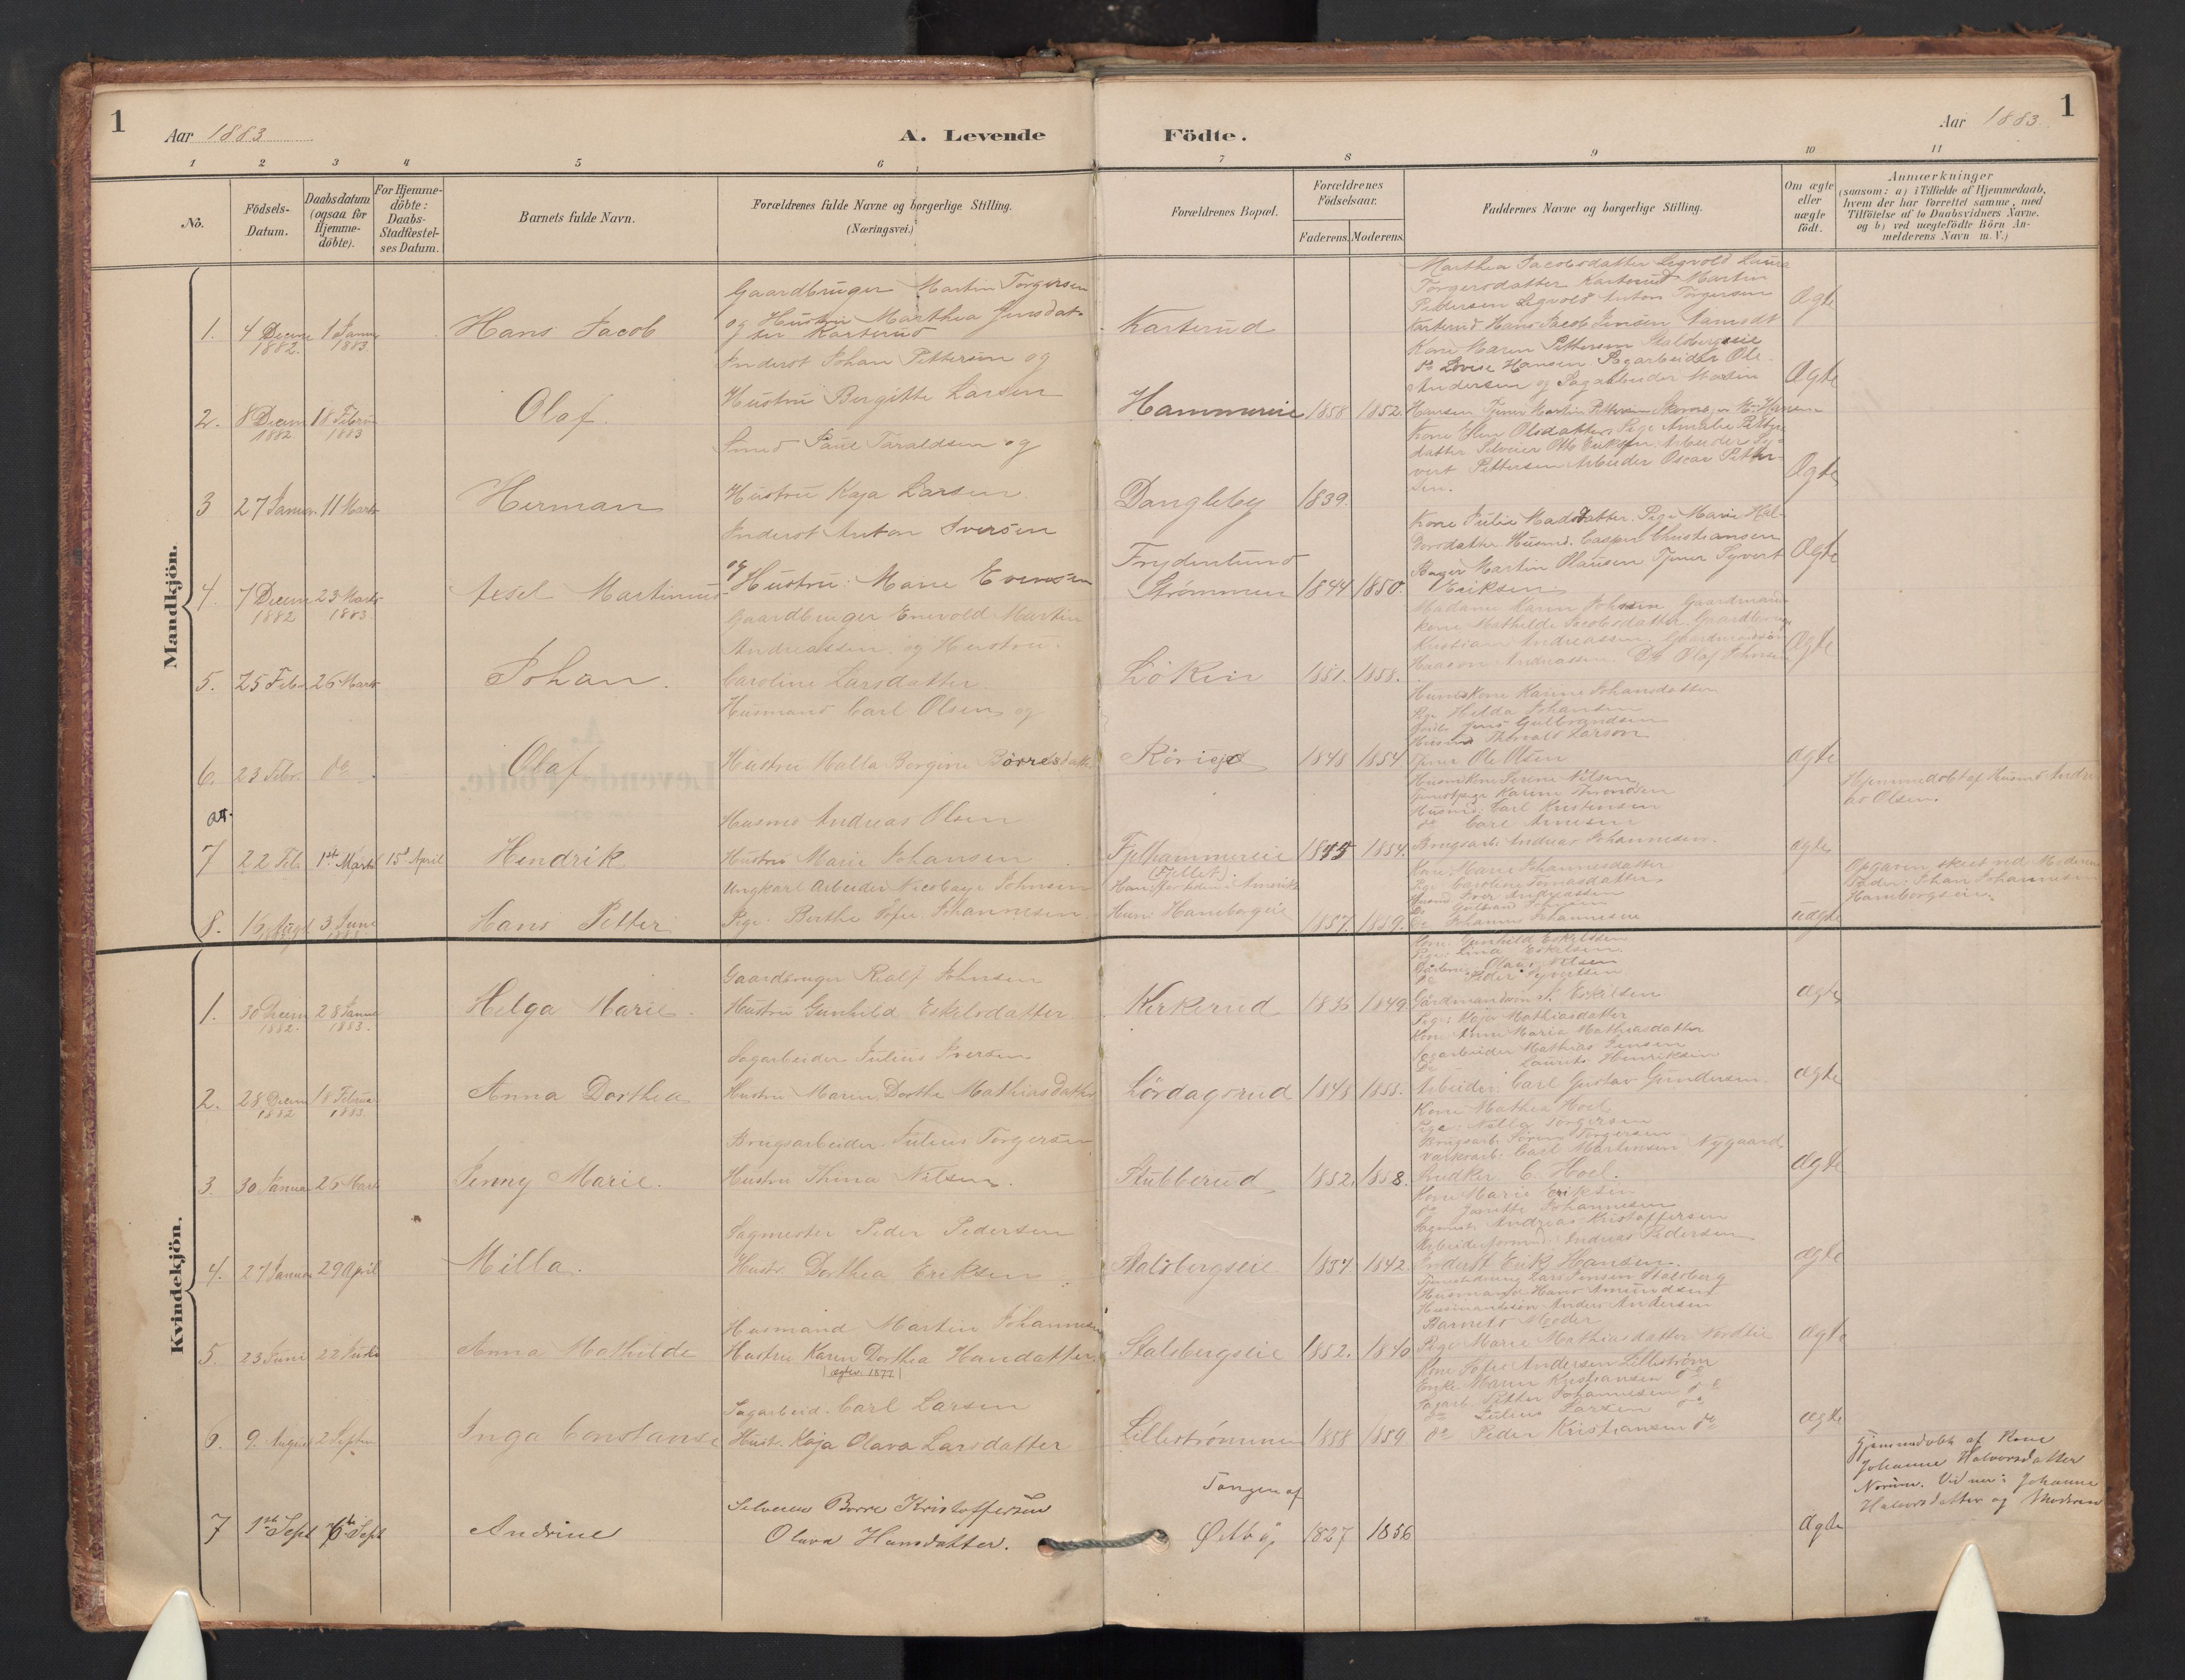 1
Aar 1883
A. Levende Födte.
Aar 1883
1
1 2 3 4 5 6 7 8 9 10 11
No.
Födsels-
Datum.
Daabsdatum
(ogsaa for
Hjemme-
döbte).
For Hjemme-
döbte:
Daabs-
Stadfæstel-
ses Datum.
Barnets fulde Navn.
Forældrenes fulde Navne og borgerlige Stilling.
(Næringsvei.)
Forældrenes Bopæl.
Forældrenes
Födselsaar.
Faderens. Moderens.
Faddernes Navne og borgerlige Stilling.
Om ægte
eller
uægte
födt.
Anmærkninger
(saasom: a) i Tilfælde af Hjemmedaab,
hvem der har forrettet samme, med
Tilföielse af to Daabsvidners Navne.
og b) ved uægtefödte Börn An-
melderens Navn m. V.)
Mandkjön.
1. 4 Decem 1882. 1 Janu 1883.
Hans Jacob
Gaardbruger Martin Torgersen
og Hustru Marthea Jensdat-
ter Karterud
Karterud
Marthea Jacobsdatter Legvold
Torgersdatter Karterud Martin
Pedersen Legvold Anton Torgersen
Karterud Hans Jacob Jensen
Ægte
2. 8 Decem 1882 18 Februa 1883
Olaf.
Inderst Johan Pettersen og
Hustru Bergitte Larsen
Hammereie 1858 1852.
Kone Maren Pettersen Stalsbergseie
do Lovise Hansen Sagarbeider Ole
Andersen og Sagarbeider Martin
Hansen Tjener Martin Pettersen
Ægte
3 27 Januar 11 Marts
Herman
Smed Paul Taraldsen og
Hustru Kaja Larsen.
Dangleby 1839.
Kone Elen Olsdatter Pige Amalie Petters
datter Selveier Otto Eriksen Arbeider Sy-
vert Pettersen Arbeider Oscar Petter-
sen.
Ægte
4. 7 Decem 1882 23 Marts 1883.
Axsel Martinius
Inderst Anton Iversen
og Hustru: Marie Evensen
Frydenlund
Strømmen 1844 1850.
Kone Julie Madsdatter. Pige Marie Hal-
vorsdatter Husmd. Casper Christiansen
Bager Martin Olausen Tjener Syvert
Eriksen.
Ægte
5. 25 Febr 26 Marts
Johan.
Gaardbruger Enevold Martin
Andreassen. og Hustru.
Caroline Larsdatter.
Löken 1851. 1858.
Madame Karen Johnsen Gaardmand
kone Mathilde Jacobsdatter Gaardbrug
Kristian Andreassen. Gaardmandsön
Haacon Andreassen. Do Olaf Johnsen
Ægte
6. 23 Febr. do
Olaf
Husmand Carl Olsen og
Hustru Malla Borgine Börresdatt.
1848 1854
Husmkone Karine Johansdatter
Pige Hilda Johansen
Jens Gulbrandsen
Husmd Thorvald Larsen
Tjener Ole Olsen
ægte
7 22 Feb. 1st Marts 15d April
Hendrik
Husmd Andreas Olsen
Hustru Marie Johansen
Fjelhammereie
(Fjellet). 1845 1854.
Husmkone Serene Nilsen
Tjenestpige Karen Throndsen
Husmd: Carl Kristensen
do Carl Arnesen
Brugsarb: Andreas Johannesen.
ægte
Hjemmedöbt af Husmd Andre
as Olsen.
8. 16 Augt 3 Juni
Hans Petter
Ungkarl Arbeider Nicolaye Johnsen
Pige: Berthe Sofie Johannesen
Han: Amerika
Hun: Haneborgeie 1857. 1859.
Kone: Marie Johannesdatter
Pige Caroline Tomasdatter
Husmd Iver Andreassen
do Gulbrand Johnsen
do Johannes Johannesen
uægte
Opgaven skeet ved Moderen
Fader: Johan Johannesen
Haneborgseie.
Kvindekjön.
1. 30 Decem 1882. 28 Janu 1883.
Helga Marie.
Gaardbruger Rialf Johnsen
Hustru Gunhild Eskelsdatter
Kirkerud 1836 1849
Kone: Gunhild Eskelsen
Pige: Lina Eskelsen
Olaus Nilsen
do Peder Syvertsen
Gårdmandssön Eskelsen
ægte
2. 28 Decem 1882 18 Februa 1883.
Anna Dorthea
Sagarbeider Julius Iversen
Hustru Maren Dorthe Mathiasdatter
Lördagsrud 1848 1855.
Pige: Maja Mathiasdatter
Kone Anne Marie Mathiasdatter
Sagarbeider Mathias Jensen
do Laurits Henriksen
Arbeider. Carl Gustav Gundersen.
ægte
3. 30 Janua 25 Marts
Jenny Marie.
Brugsarbeider Julius Torgersen
Hustru Thina Nilsen.
Stubberud 1852. 1858.
Kone Mathea Hoel
Pige: Nilla Torgersen
Brugsarb. Sören Torgersen
Værksarb. Carl Martinsen Nygaard
Snedker C. Hoel.
ægte
4. 27 Januar 29 April
Milla.
Sagmester Peder Pedersen
Hustr. Dorthea Eriksen
Stalsbergseie 1834 1842.
Kone Marie Eriksen
do Janette Johannesen
Sagmest. Andreas Kristoffersen
Arbeiderformd: Andreas Pedersen
Inderst Erik Hansen.
ægte
5. 23 Juni 22 Juli
Anna Mathilde
Husmand Martin Johannesen
Hustru Karen Dorthea Hansdatter.
(ægtev. 1877)
Stalsbergseie 1852. 1840
Tjenestedreng Lars Jensen Stalsberg
Husmand Hans Amundsen
Husmandssön Anders Andersen
Barnets Moder
Pige Marie Mathiasdatter Nordlie
ægte
6. 9. August 2 Septbr
Inga Constanse
Sagarbeid. Carl Larsen
Hustr. Kaja Olava Larsdatter
Lilleströmmen 1858 1859
Kone Sofie Andersen Lilleström
Enke Maren Kristiansen do
Sagarb. Petter Johannesen do
do Julius Larsen do
do Peder Kristiansen do
ægte
7 1st Sept 16de Sept
Andrine
Selveier Borre Kristoffersen
Olava Hansdatter.
Tangen af
Østby 1827 1856
ægte
Hjemmedöbt af Kone
Johanne Halvorsdatter
Norum. Vidner: Johanne
Halvorsdatter og Moderen